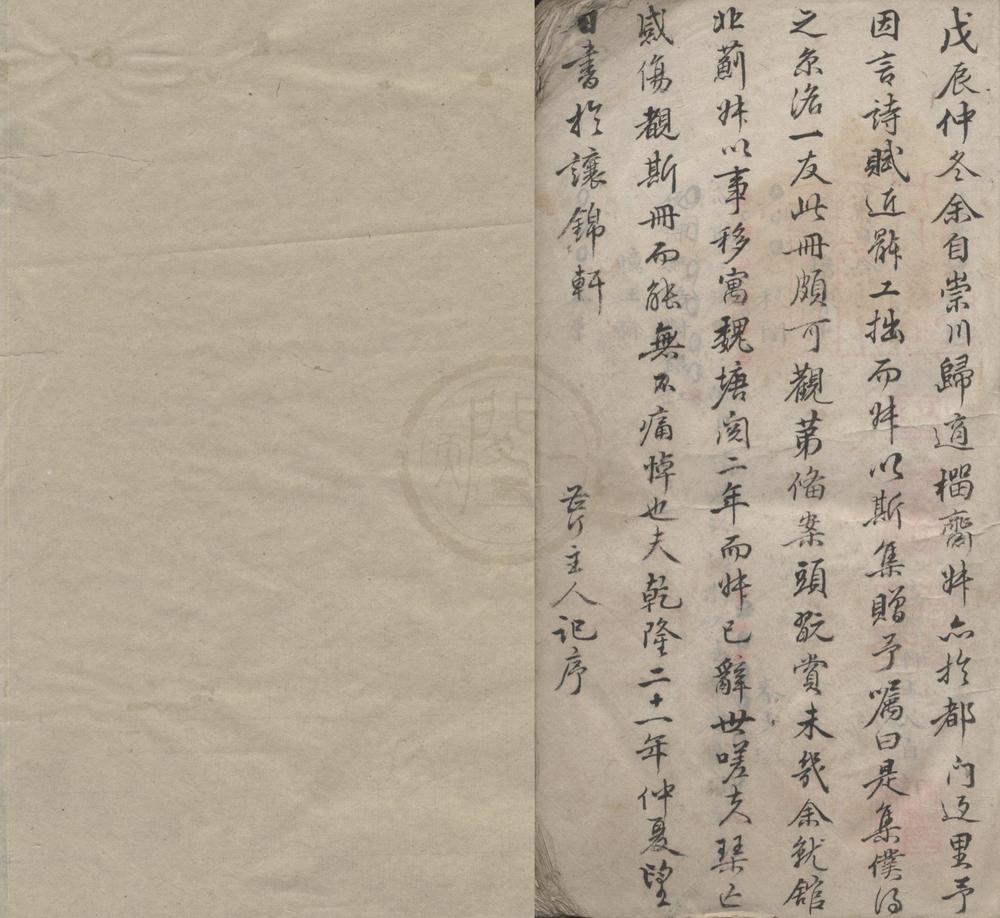 戊辰仲冬余自崇川歸適榴齋妹亦於都门迈里予
因言詩賦近體工拙而妹以斯集贈予嘱曰是集僕得
之京洛一友此冊頗可觀第俻案頭翫賞未幾余就館
北薊妹以事移寓魏塘閱二年而妹已辭世嗟夫琴亡
感傷覩斯冊而能無不痛悼也夫乾隆二十一年仲夏望
日書於讓錦軒
主人記序